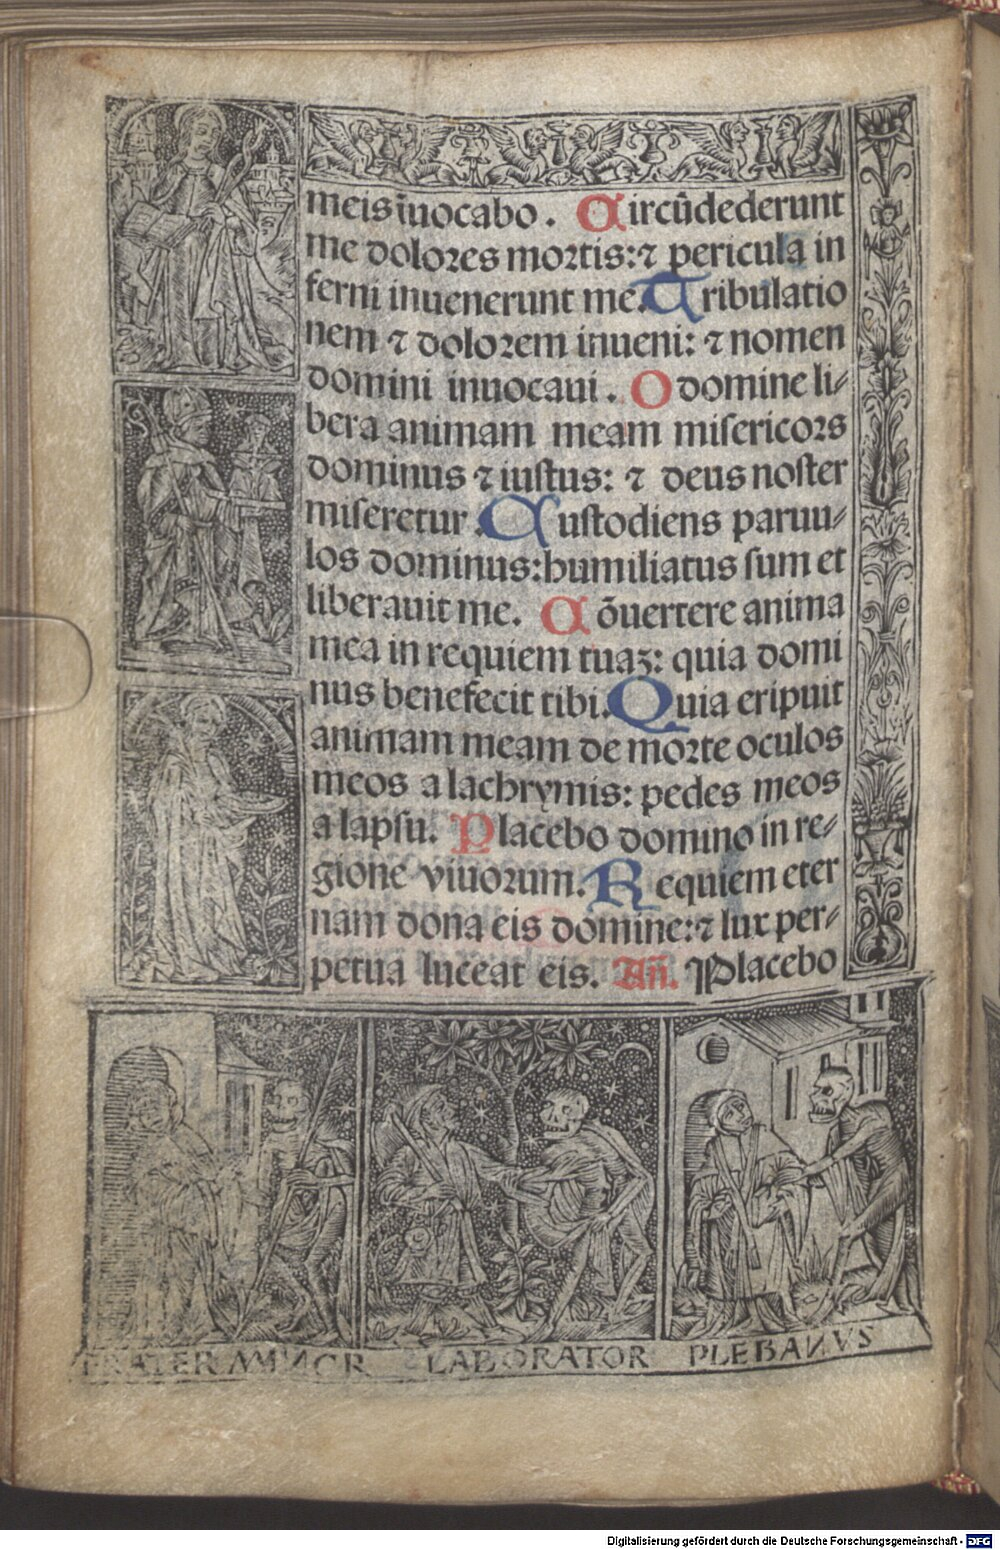 meis īuocabo. Circūdederunt
me doloꝛes moꝛtis: ⁊ pericula in
ferni inuenerunt me. Tribulatio
nem ⁊ doloꝛem inueni: ⁊ nomen
domini inuocaui. O domine li⸗
bera animam meam miſericoꝛs
dominus ⁊ iuſtus: ⁊ deus noſter
miſeretur. Cuſtodiens paruu⸗
los dominus: humiliatus ſum et
liberauit me. Cōuertere anima
mea in requiem tuaꝫ: quia domi
nus benefecit tibi. Quia eripuit
animam meam de moꝛte oculos
meos a lachrymis: pedes meos
a lapſu. Placebo domino in re⸗
gione viuoꝛum. Requiem eter
nam dona eis domine: ⁊ lux per⸗
petua luceat eis. Añ. Placebo
FRATER MINOR LABORATOR PLEBANVS
Digitalisierung gefördert durch die Deutsche Forschungsgemeinschaft - DFG